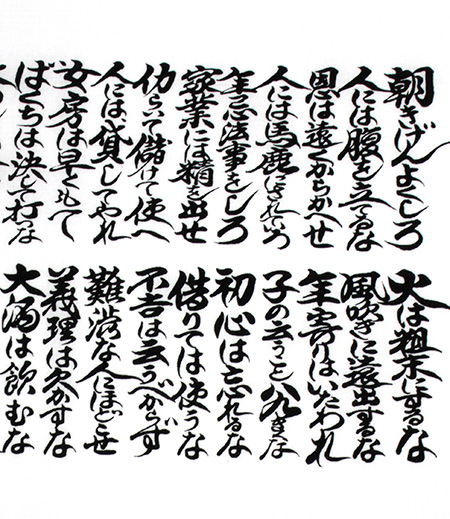 朝きげんよくしろ
人には腹を立てるな
恩は遠くからかへせ
人には馬鹿にされていろ
年忌法事をしろ
家業には精を出せ
仂らいて儲けて使へ
人には貸してやれ
女房は早くもて
ばくちは決して打つな
火は粗末にするな
風吹きに遠出するな
年寄りはいたわれ
子の云うこと八九きくな
初心は忘れるな
借りては使うな
不吉は云うべからず
難渋な人にほどこせ
義理は欠かすな
大酒は飲むな